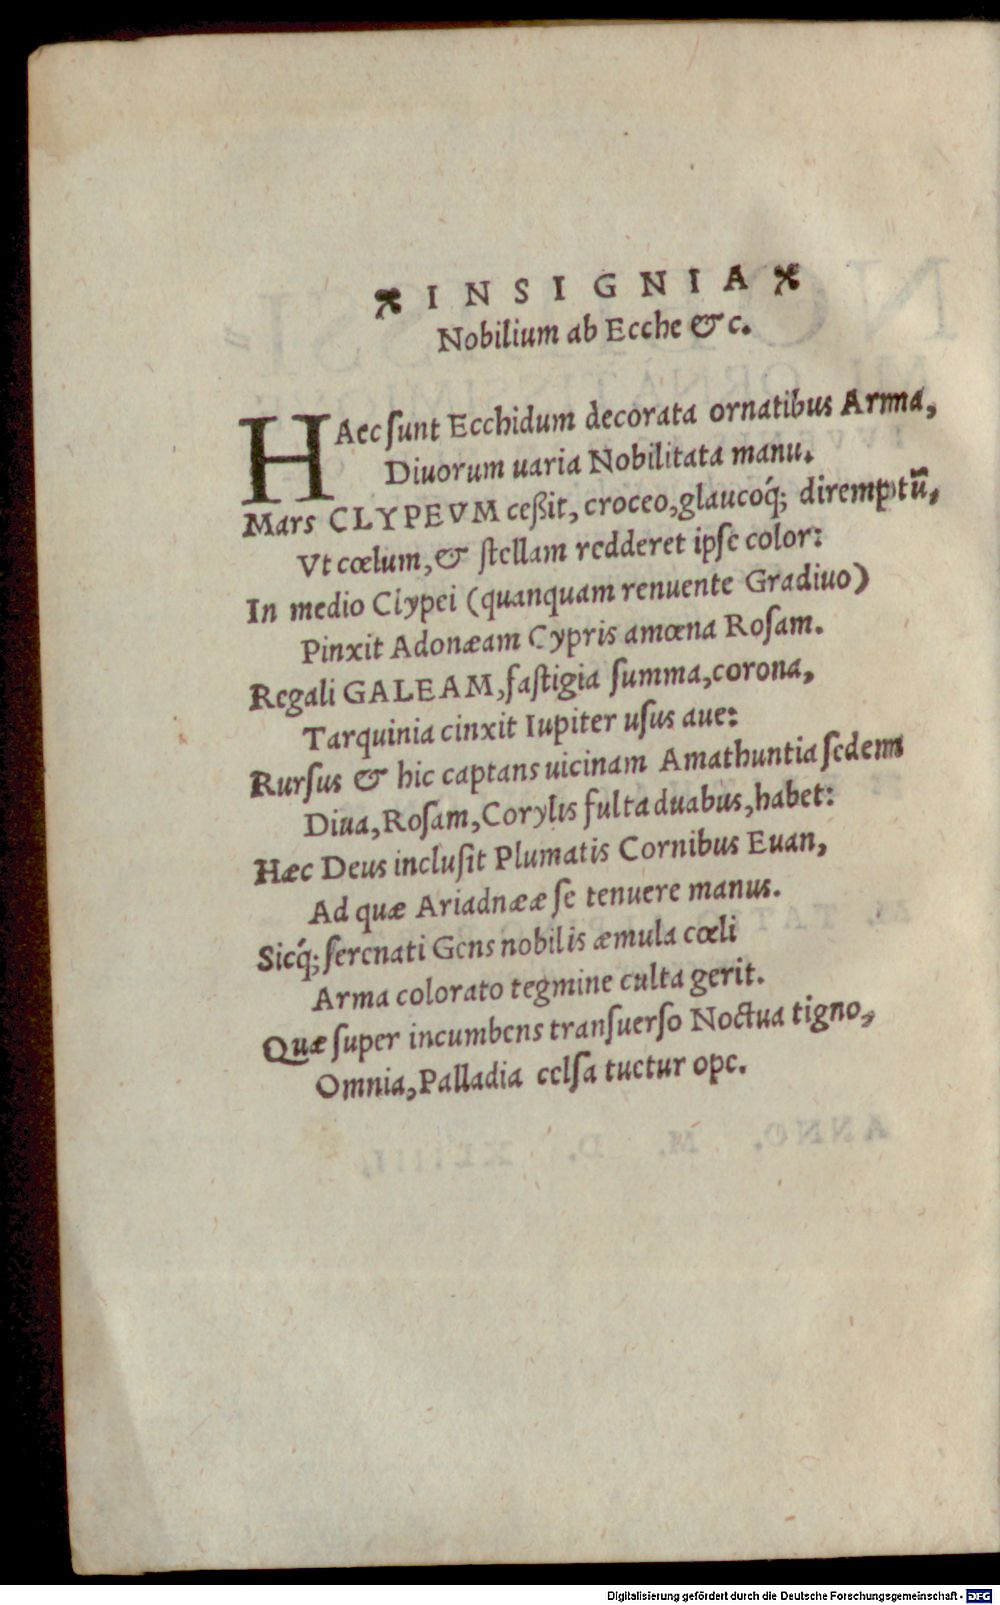 INSIGNIA
Nobilium ab Ecche & c.
HAec ſunt Ecchidum decorata ornatibus Arma,
Diuorum uaria Nobilitata manu.
Mars CLYPEVM ceßit, croceo, glaucoq́; diremptū,
Vt cœlum, & ſtellam redderet ipſe color:
In medio Clypei (quanquam renuente Gradiuo)
Pinxit Adonæam Cypris amœna Roſam.
Regali GALEAM, faſtigia ſumma, corona,
Tarquinia cinxit Iupiter uſus aue:
Rurſus & hic captans uicinam Amathuntia ſedem
Diua, Roſam, Corylis fulta duabus, habet:
Hæc Deus incluſit Plumatis Cornibus Euan,
Ad quæ Ariadnææ ſe tenuere manus.
Sicq́; ſerenati Gens nobilis æmula cœli
Arma colorato tegmine culta gerit.
Quæ ſuper incumbens tranſuerſo Noctua tigno,
Omnia, Palladia celſa tuetur ope.
Digitalisierung gefördert durch die Deutsche Forschungsgemeinschaft - DFG